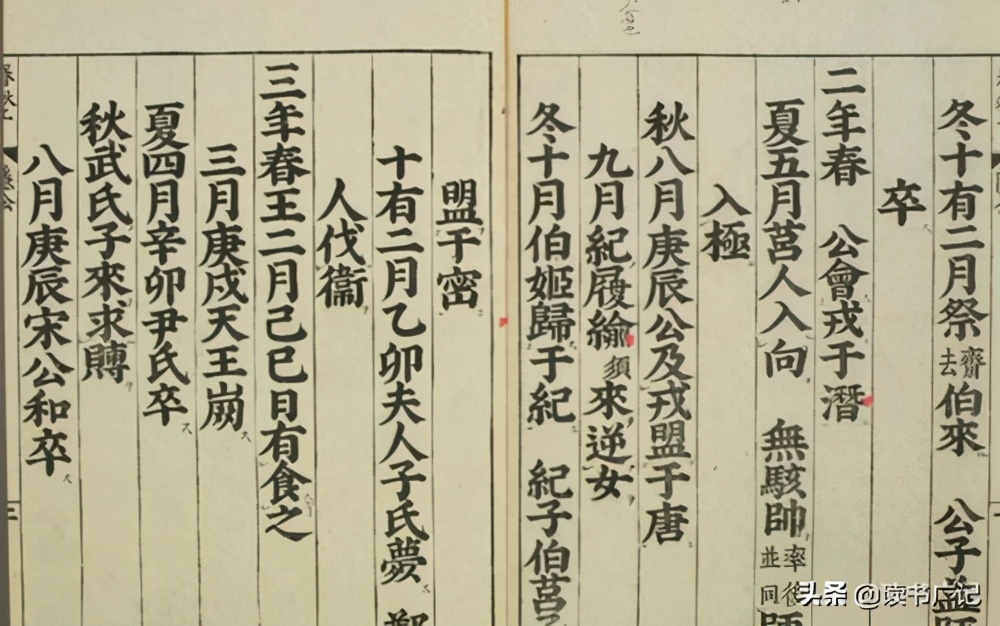 冬十有二月祭齊去伯來　公子益師
卒
二年春　公會戎于潛
夏五月莒人入向　無駭帥率後並同師
入極
秋八月庚辰公及戎盟于唐
九月紀履綸須來逆女
冬十月伯姬歸于紀　紀子伯莒子
盟于密
十有二月乙卯夫人子氏薨　鄭
人伐衞
三年春王二月己巳日有食之
三月庚戌天王崩
夏四月辛卯尹氏卒
秋武氏子來求賻
八月庚辰宋公和卒
春秋上
隱公
二
头条 @读书广记